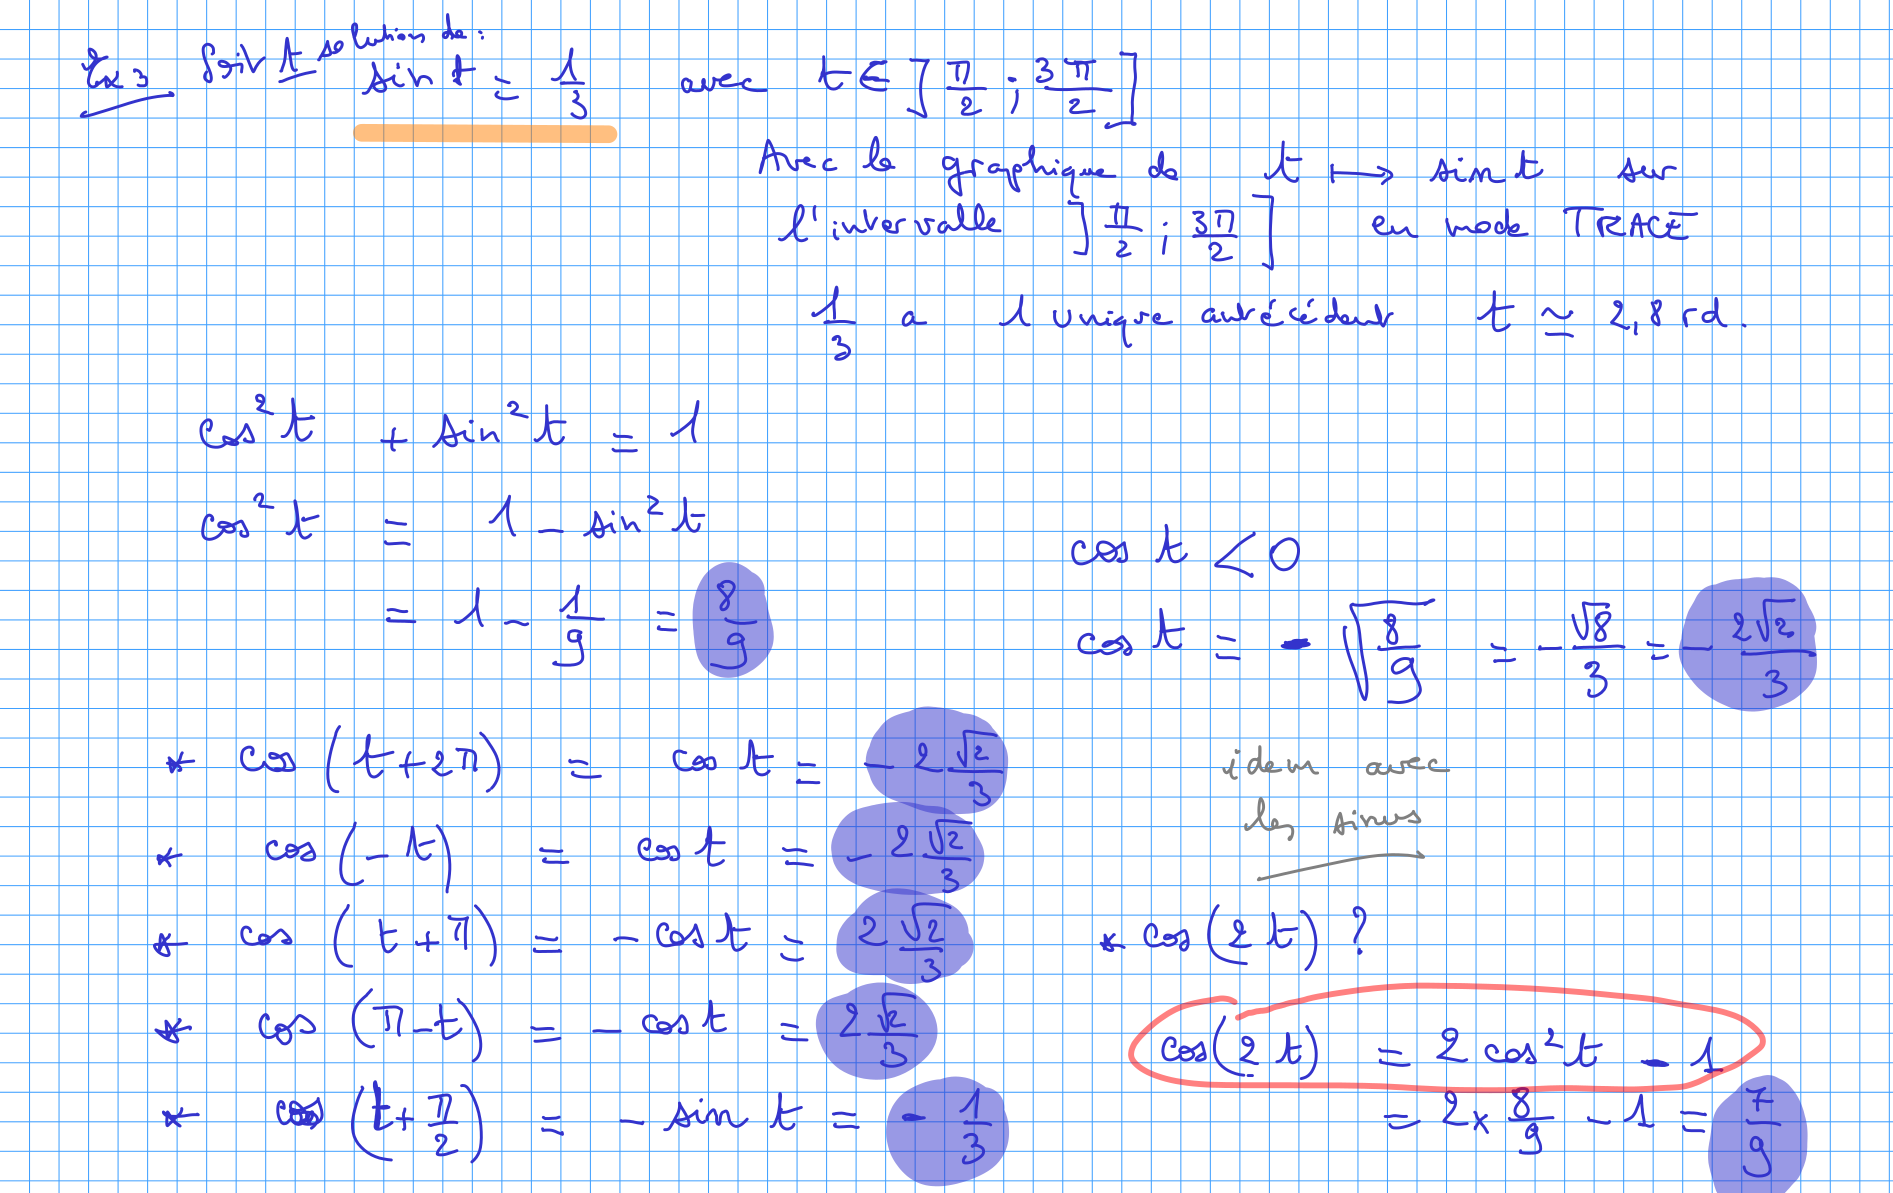 Ex 3 Soit t solution de :
sin t = 1/3 avec t ∈ ]π/2 ; 3π/2]
Avec le graphique de t ⟼ sin t sur
l'intervalle ]π/2 ; 3π/2] en mode TRACE
1/3 a 1 unique antécédent t ≃ 2,8 rd.
cos² t + sin² t = 1
cos² t = 1 - sin² t
= 1 - 1/9 = 8/9
cos t < 0
cos t = - √(8/9) = - √8/3 = - 2√2/3
* cos (t+2π) = cos t = - 2√2/3
* cos (-t) = cos t = - 2√2/3
* cos (t+π) = - cos t = 2√2/3
* cos (π-t) = - cos t = 2√2/3
* cos (t+π/2) = - sin t = - 1/3
idem avec
les sinus
* cos (2t) ?
cos(2t) = 2 cos² t - 1
= 2 x 8/9 - 1 = 7/9